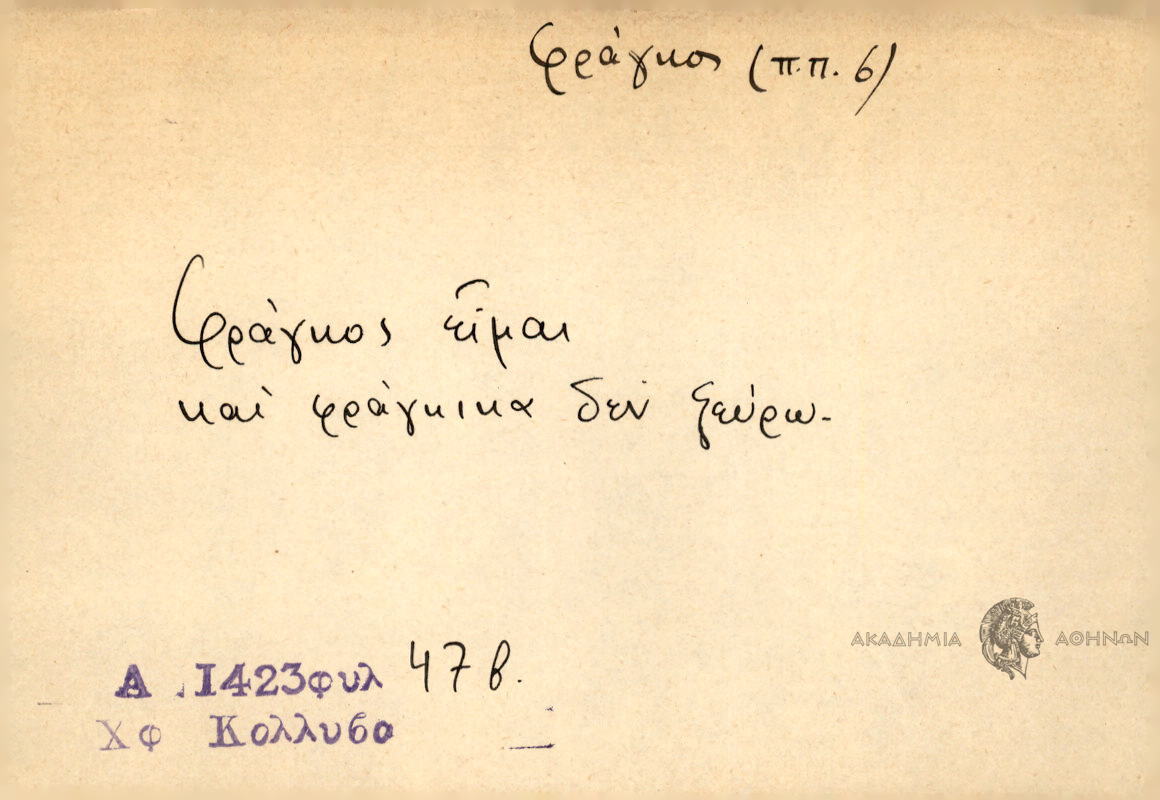 Φράγκος (π.π. 6)
Φράγκος εἶμαι
καὶ φράγκικα δὲν ξεύρω.
ΑΚΑΔΗΜΙΑ ΑΘΗΝΩΝ
Α .1423φυλ 47β.
Χφ Κολλυβα